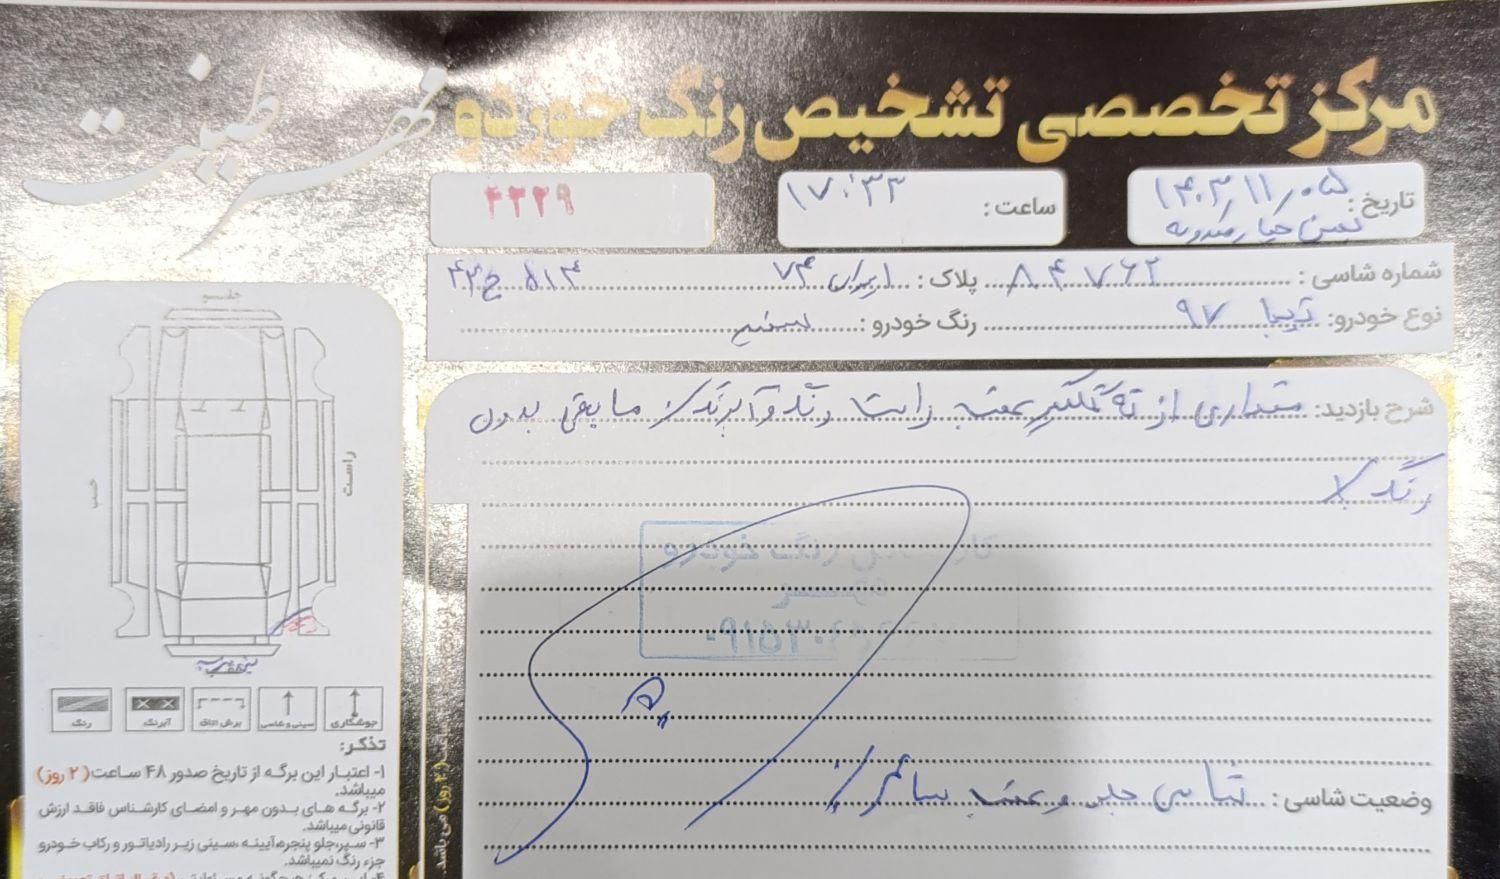 مرکز تخصصی تشخیص رنگ خودرو
مهر طینت
تاریخ: ۱۴۰۳/۱۱/۰۵
ساعت: ۱۷:۳۳
۴۲۲۹
شماره شاسی: ۸۴۷۶۲ پلاک: ایران ۷۴ ۵۱۴ ج ۴۳
نوع خودرو: تیبا ۹۷ رنگ خودرو: سفید
شرح بازدید: مقداری از ته گلگیر عقب راست رنگ و آبرنگ مابقی بدون
رنگ
کارشناسی رنگ خودرو
مهر
وضعیت شاسی: شاسی جلو و عقب سالم
جلو
راست
چپ
عقب
جوشکاری
سینی و شاسی
برش اتاق
آبرنگ
رنگ
تذکر:
۱- اعتبار این برگه از تاریخ صدور ۴۸ ساعت (۲ روز)
میباشد.
۲- برگه های بدون مهر و امضای کارشناس فاقد ارزش
قانونی میباشد.
۳- سپر، جلو پنجره، آیینه، سینی زیر رادیاتور و رکاب خودرو
جزء رنگ نمیباشد.